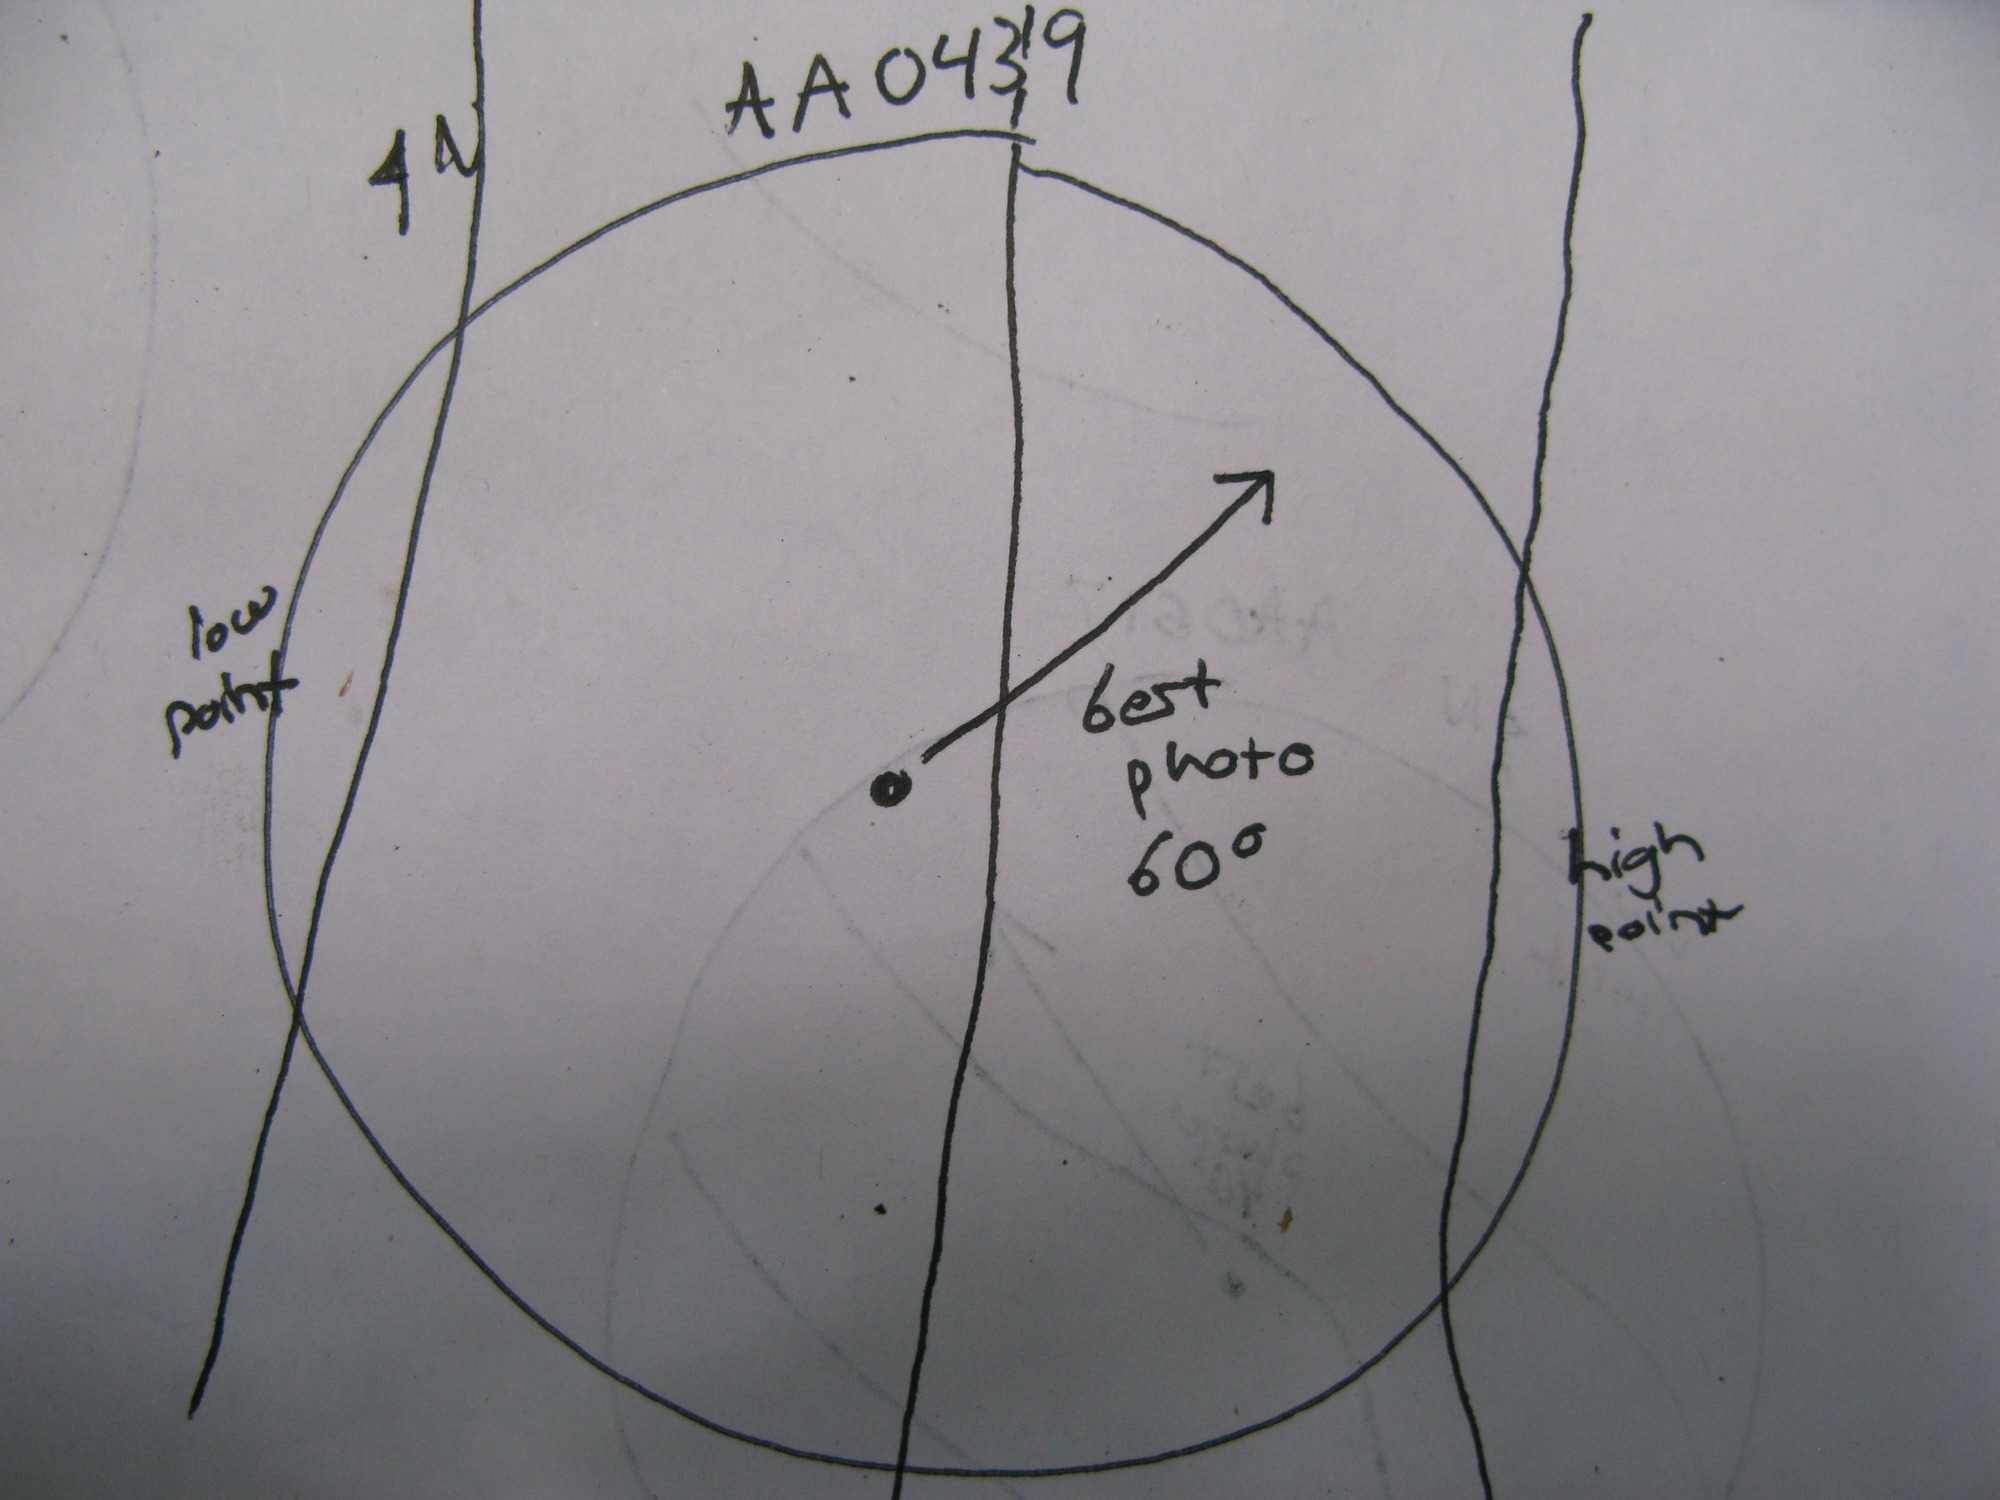 AA0439
N
low
point
best
photo
60°
high
point